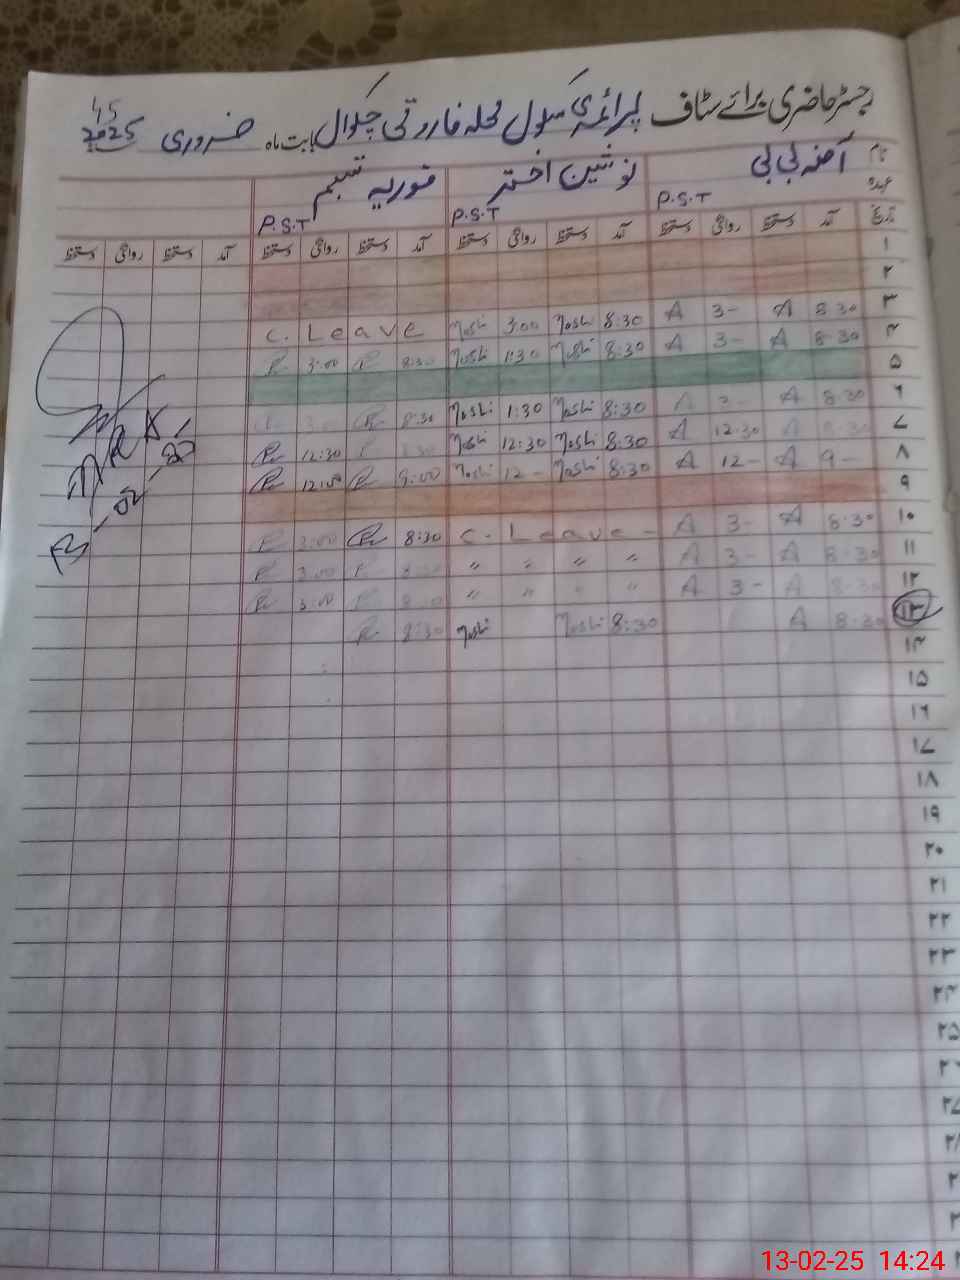 رجسٹر حاضری برائے سٹاف پرائمری سکول محلہ فاروقی چکوال بابت ماہ فروری 2025
نام آمنہ بی بی نوشین اختر فوزیہ تبسم
عہدہ P.S.T P.S.T P.S.T
تاریخ آمد دستخط روانگی دستخط آمد دستخط روانگی دستخط آمد دستخط روانگی دستخط آمد دستخط روانگی دستخط
۱
۲
۳ 8:30 A 3- A 8:30 Noshi 3:00 Noshi C. Leave
۴ 8:30 A 3- A 8:30 Noshi 1:30 Noshi 8:30 3:00
۵
۶ 8:30 A 3- A 8:30 Noshi 1:30 Noshi 8:30
۷ 8:30 A 12:30 A 8:30 Noshi 12:30 Noshi 8:30 12:30
۸ 9- A 12- A 8:30 Noshi 12- Noshi 9:00 12:00
۹
۱۰ 8:30 A 3- A C. Leave - 8:30 3:00
۱۱ 8:30 A 3- A " " " " 8:30 3:00
۱۲ 8:30 A 3- A " " " " 8:30 3:00
۱۳ 8:30 A 8:30 Noshi Noshi 8:30
۱۴
۱۵
۱۶
۱۷
۱۸
۱۹
۲۰
۲۱
۲۲
۲۳
۲۴
۲۵
13-02-25 14:24